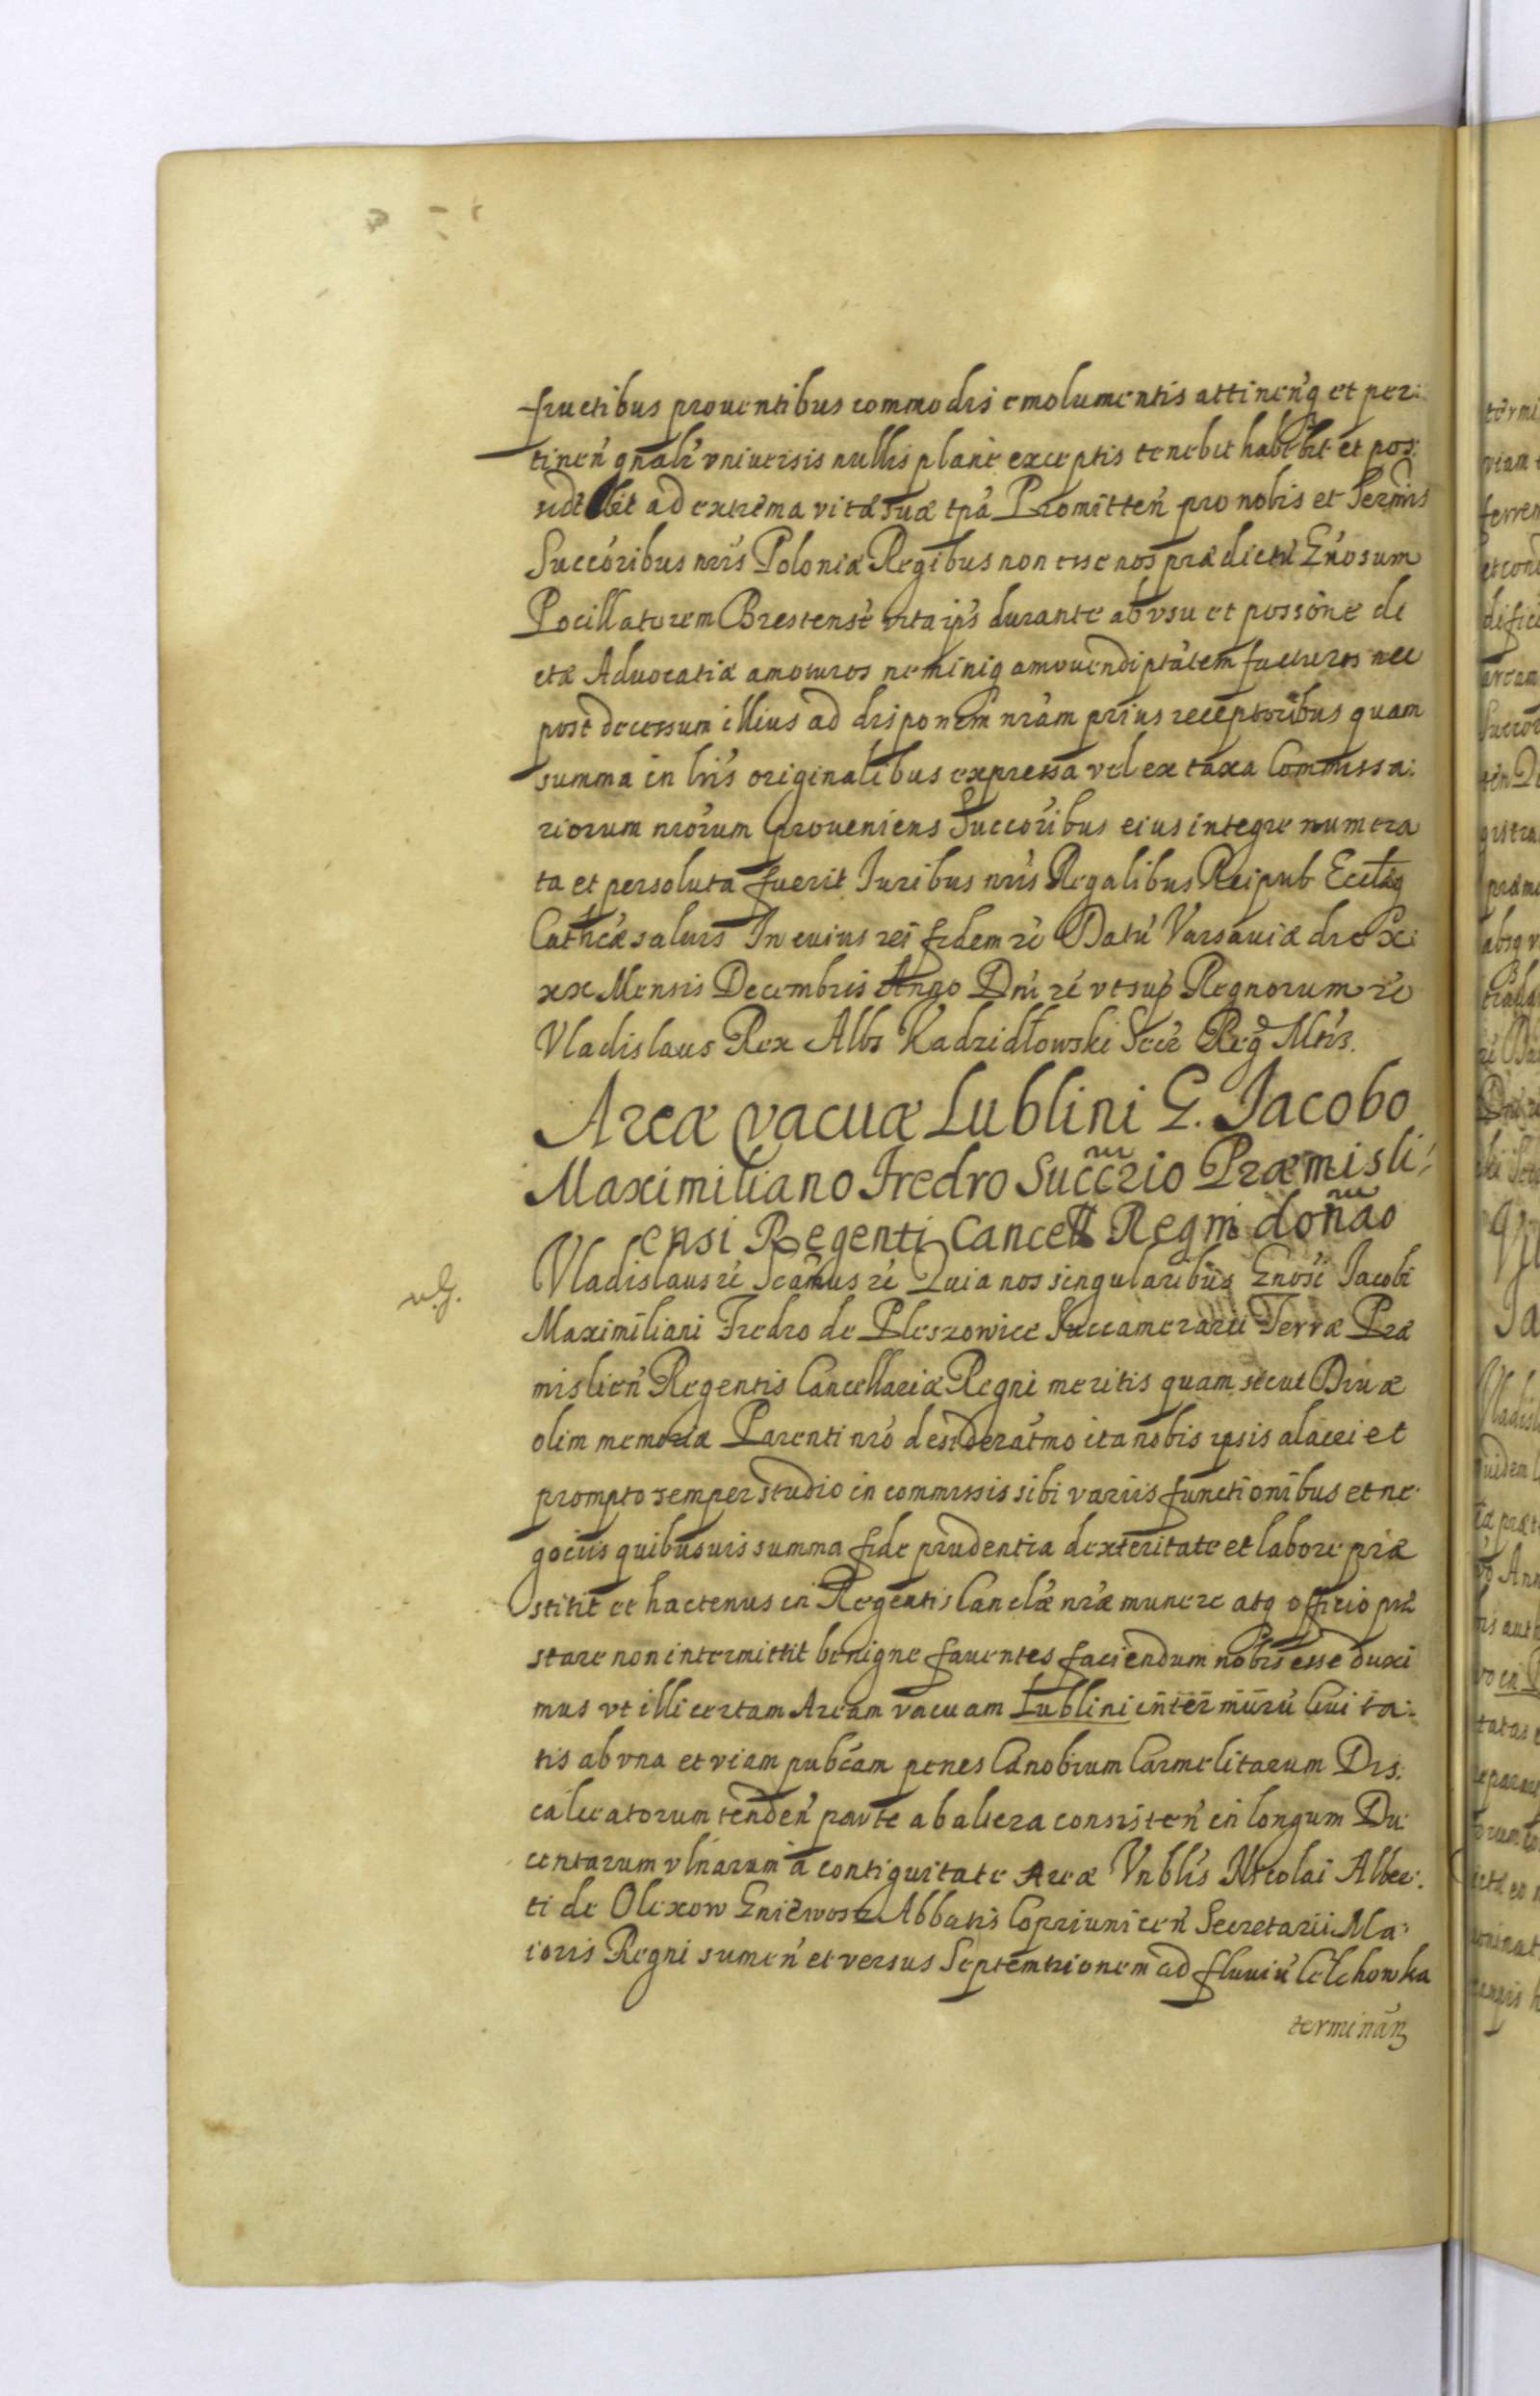 fructibus prouentibus commodis emolumentis attinen̛q et per:
tinen̛ gnalr̛ vniuersis nullis plane exceptis tenebit habebit et pos:
sidebit ad extrema vitæ suæ tpa̛ Promitten̛ pro nobis et Sermis
Succoribus nris Poloniæ Regibus non esse nos prædictư Gnosum
Pocillatorem Brestense̛ vita ips̛ durante ab vsu et possone de
ctæ Aduocatiæ amoturos neminiq amouendi ptatem facturos nec
post decessum illius ad disponem nram prius recepturibus quam
summa in lris originalibus expressa vel ex taxa Commissa:
riorum nrorum proueniens Succoribus eius integre numera
ta et persoluta fuerit Iuribus nris Regalibus Reipub Ecclæq
Cathcæ saluis In cuius rei fidem rc̛ Datư Varsauiæ die X:
xx Mensis Decembris Anno Dni rc̛ vt sup Regnorum rc̛
Vladislaus Rex Albs Kadzidłowski Secr̛ Reg Mtis.
Areæ vacuæ Lublini G. Iacobo
Maximiliano Fredro Succrio Præmisli:
ensi Regenti Cancell Regni donao
Vladislaus rc̛ Scamus rc̛ Quia nos singularibus Gnosi Iacobi
Maximiliani Fredro de Pleszowice Succamerarii Terræ Præ
mislien̛ Regentis Cancellariæ Regni meritis quam sicut Diuæ
olim memoriæ Parenti nro desideratmo ita nobis ipsis alacri et
prompto semper studio in commissis sibi variis functionibus et ne:
gociis quibusuis summa fide prudentia dexteritate et labore præ
stitit et hactenus in Regentis Canclæ nræ munere atq officio præ
stare non intermittit benigne fauentes faciendum nobis esse duxi
mus vt illi certam Aream vacuam Lublini inter murư Ciuita:
tis ab vna et viam pubcam penes Cænobium Carmelitarum Dis:
calceatorum tenden̛ parte ab altera consisten̛ in longum Du
centarum vlnarum a contiguitate Areæ Vnblis Nicolai Alber:
ti de Olexow Gniewosz Abbatis Copriunicen̛ Secretarii Ma:
ioris Regni sumen̛ et versus Septemtrionem ad fluuiư Celchowka
terminan̛